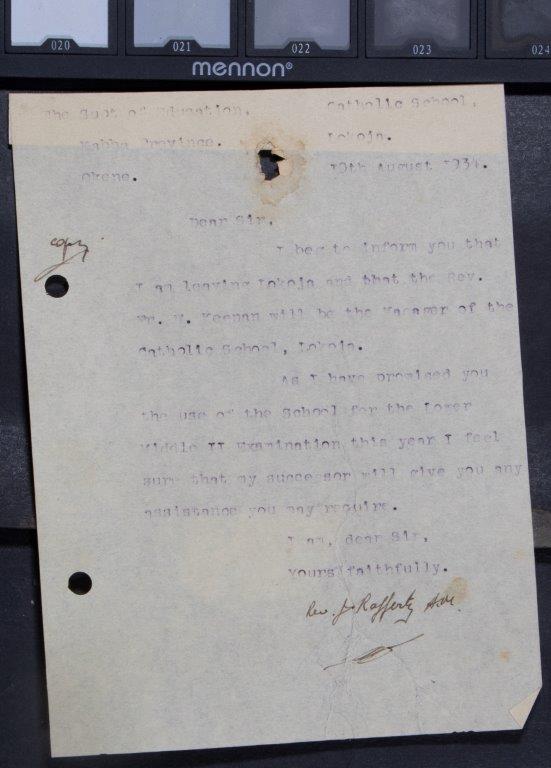 020 021 022 023 024
mennon®
The Supt of Education, Catholic School,
Kabba Province. Lokoja.
Okene. 19th August 1934.
Dear Sir,
copy
I beg to inform you that
I am leaving Lokoja and that the Rev.
Keenan will be the Manager of the
Catholic School, Lokoja.
As I have promised you
the use of the School for the Lower
Middle II Examination this year I feel
sure that my successor will give you any
assistance you may require.
I am, dear Sir,
yours faithfully.
Rev. J. Rafferty